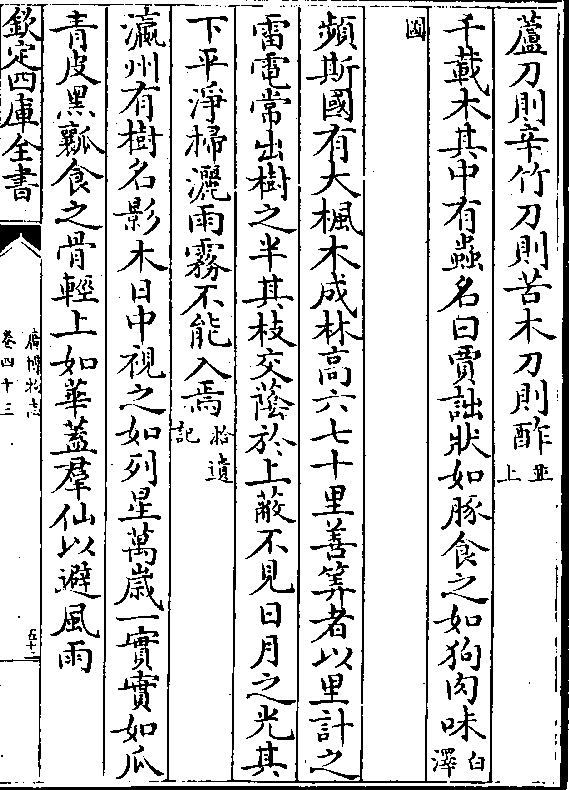 蘆刀則辛竹刀則苦木刀則酢並上
千載木其中有蟲名曰賈詘狀如豚食之如狗肉味白澤
圖
頻斯國有大楓木成林高六七十里善筭者以里計之
雷電常出樹之半其枝交蔭於上蔽不見日月之光其
下平淨掃灑雨霧不能入焉拾遺記
瀛州有樹名影木日中視之如列星萬歲一實實如瓜
青皮黑瓤食之骨輕上如華蓋羣仙以避風雨
欽定四庫全書
廣博物志
卷四十三
五十